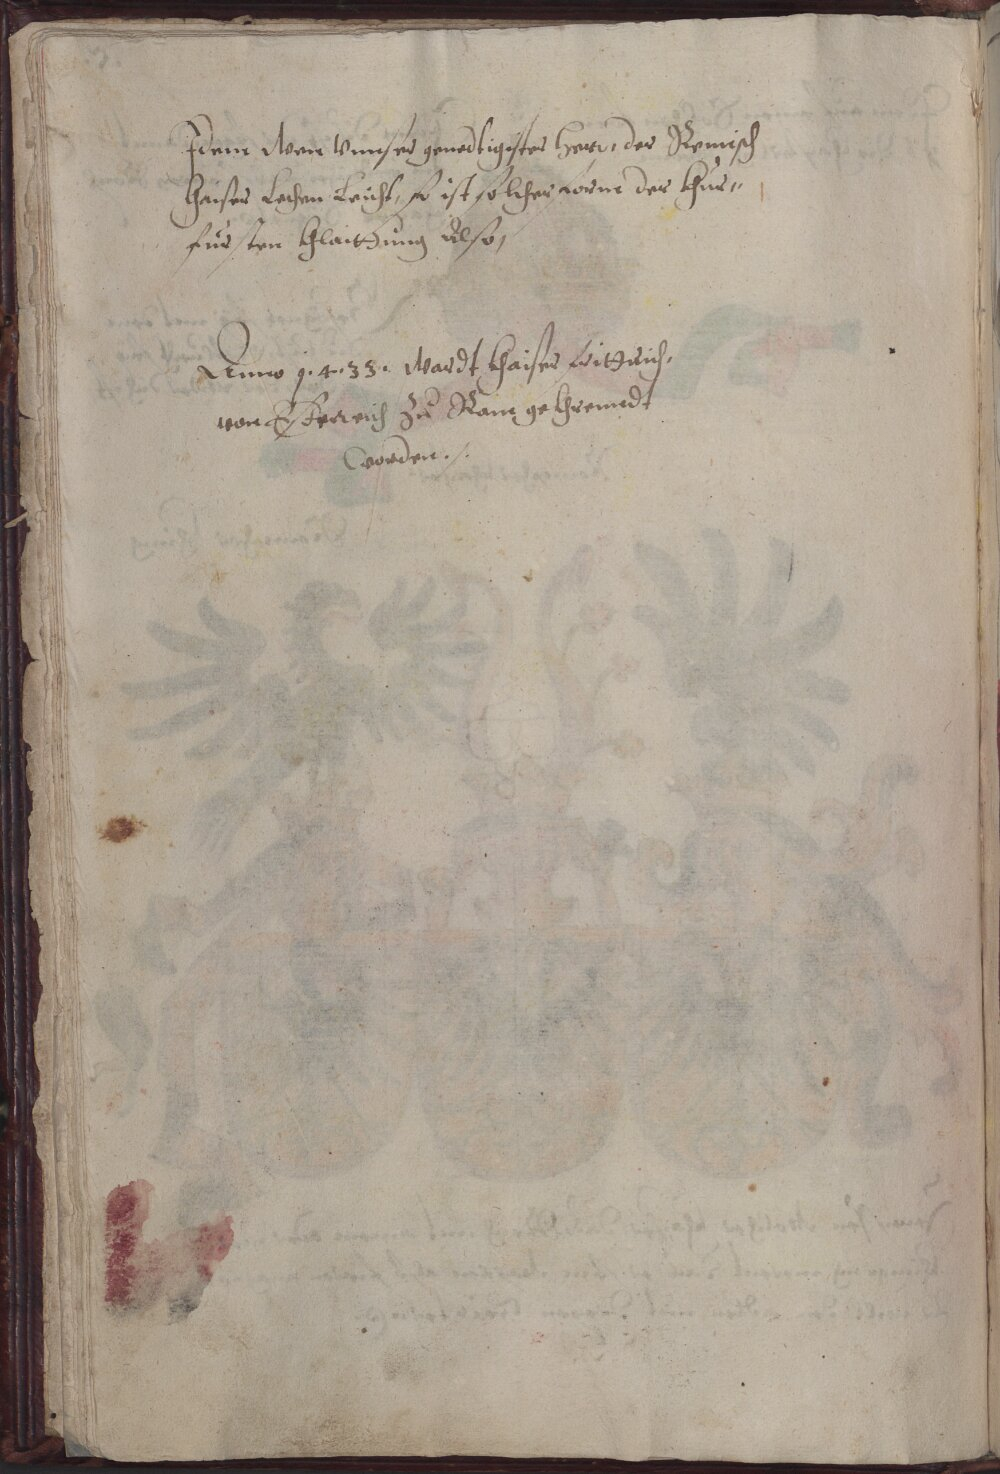 Idem Wen Vnnser genedtigister Herr, der Remisch
Khaiser Lechen Leicht, so ist solcher Form der Khur„
fürsten Khlaittung Also,
Anno 1.4.33. Wardt Khaiser Fridrich,
von Österreich Zu Ram gekhrenndt
Worden./.